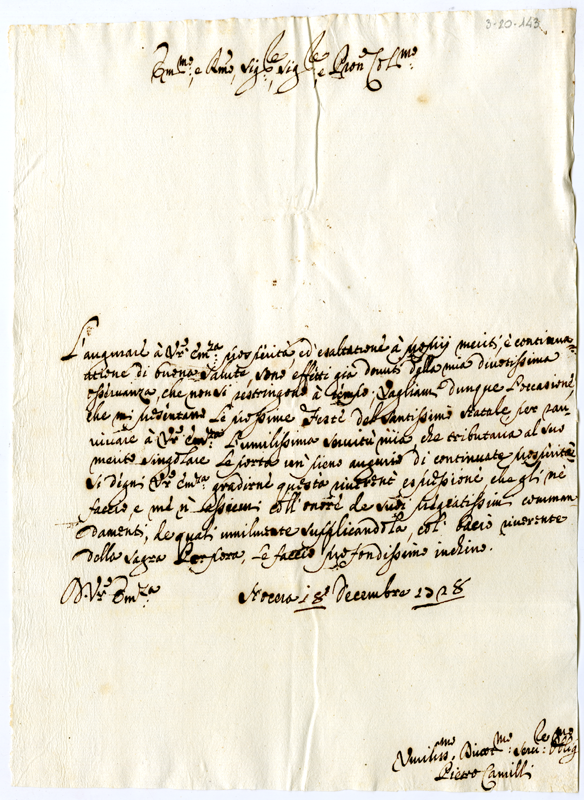 3-20-143
Em:mo e Rmo, Sig:re Sig:re e Pron Col:mo
L'augurare à V:ra Em:za prosperità, ed esaltatione à proprij meriti, e continua
tione di buona salute sono effetti già dovuti della mia divotissima
osservanza, che non si restringono à tempo. Vagliami dunque l'occasione,
che mi presentano le prossime Feste del Santissimo Natale, per rav
vivare à V:ra Em:za l'umilissima servitù mia, che tributaria al suo
merito singolare le porta un pieno augurio di continuate prosperità
Si degni V:ra Em:za gradirne questa riverente espressione che gli ne
faccio, e mi coll'onore de suoi pregiatissimi comman
damenti, de quali umilmente supplicandola, col bacio riverente
della Sagra Porpora, le faccio profondissimo inchino.
D. V:ra Em:za Nocera 18 Decembre 1728
Umiliss:mo Divot:mo Serv:re Oblig:mo
Pietro Camilli